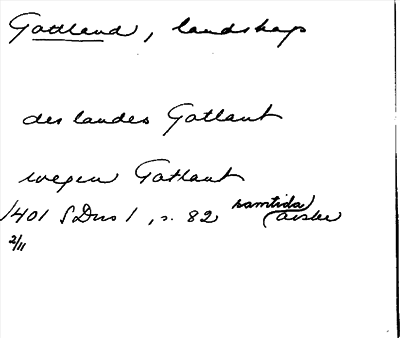 Gottland, landskap
des landes Gotlant
wegen Gotlant
1401 SDns 1, s. 82 samtida avskr
2/11